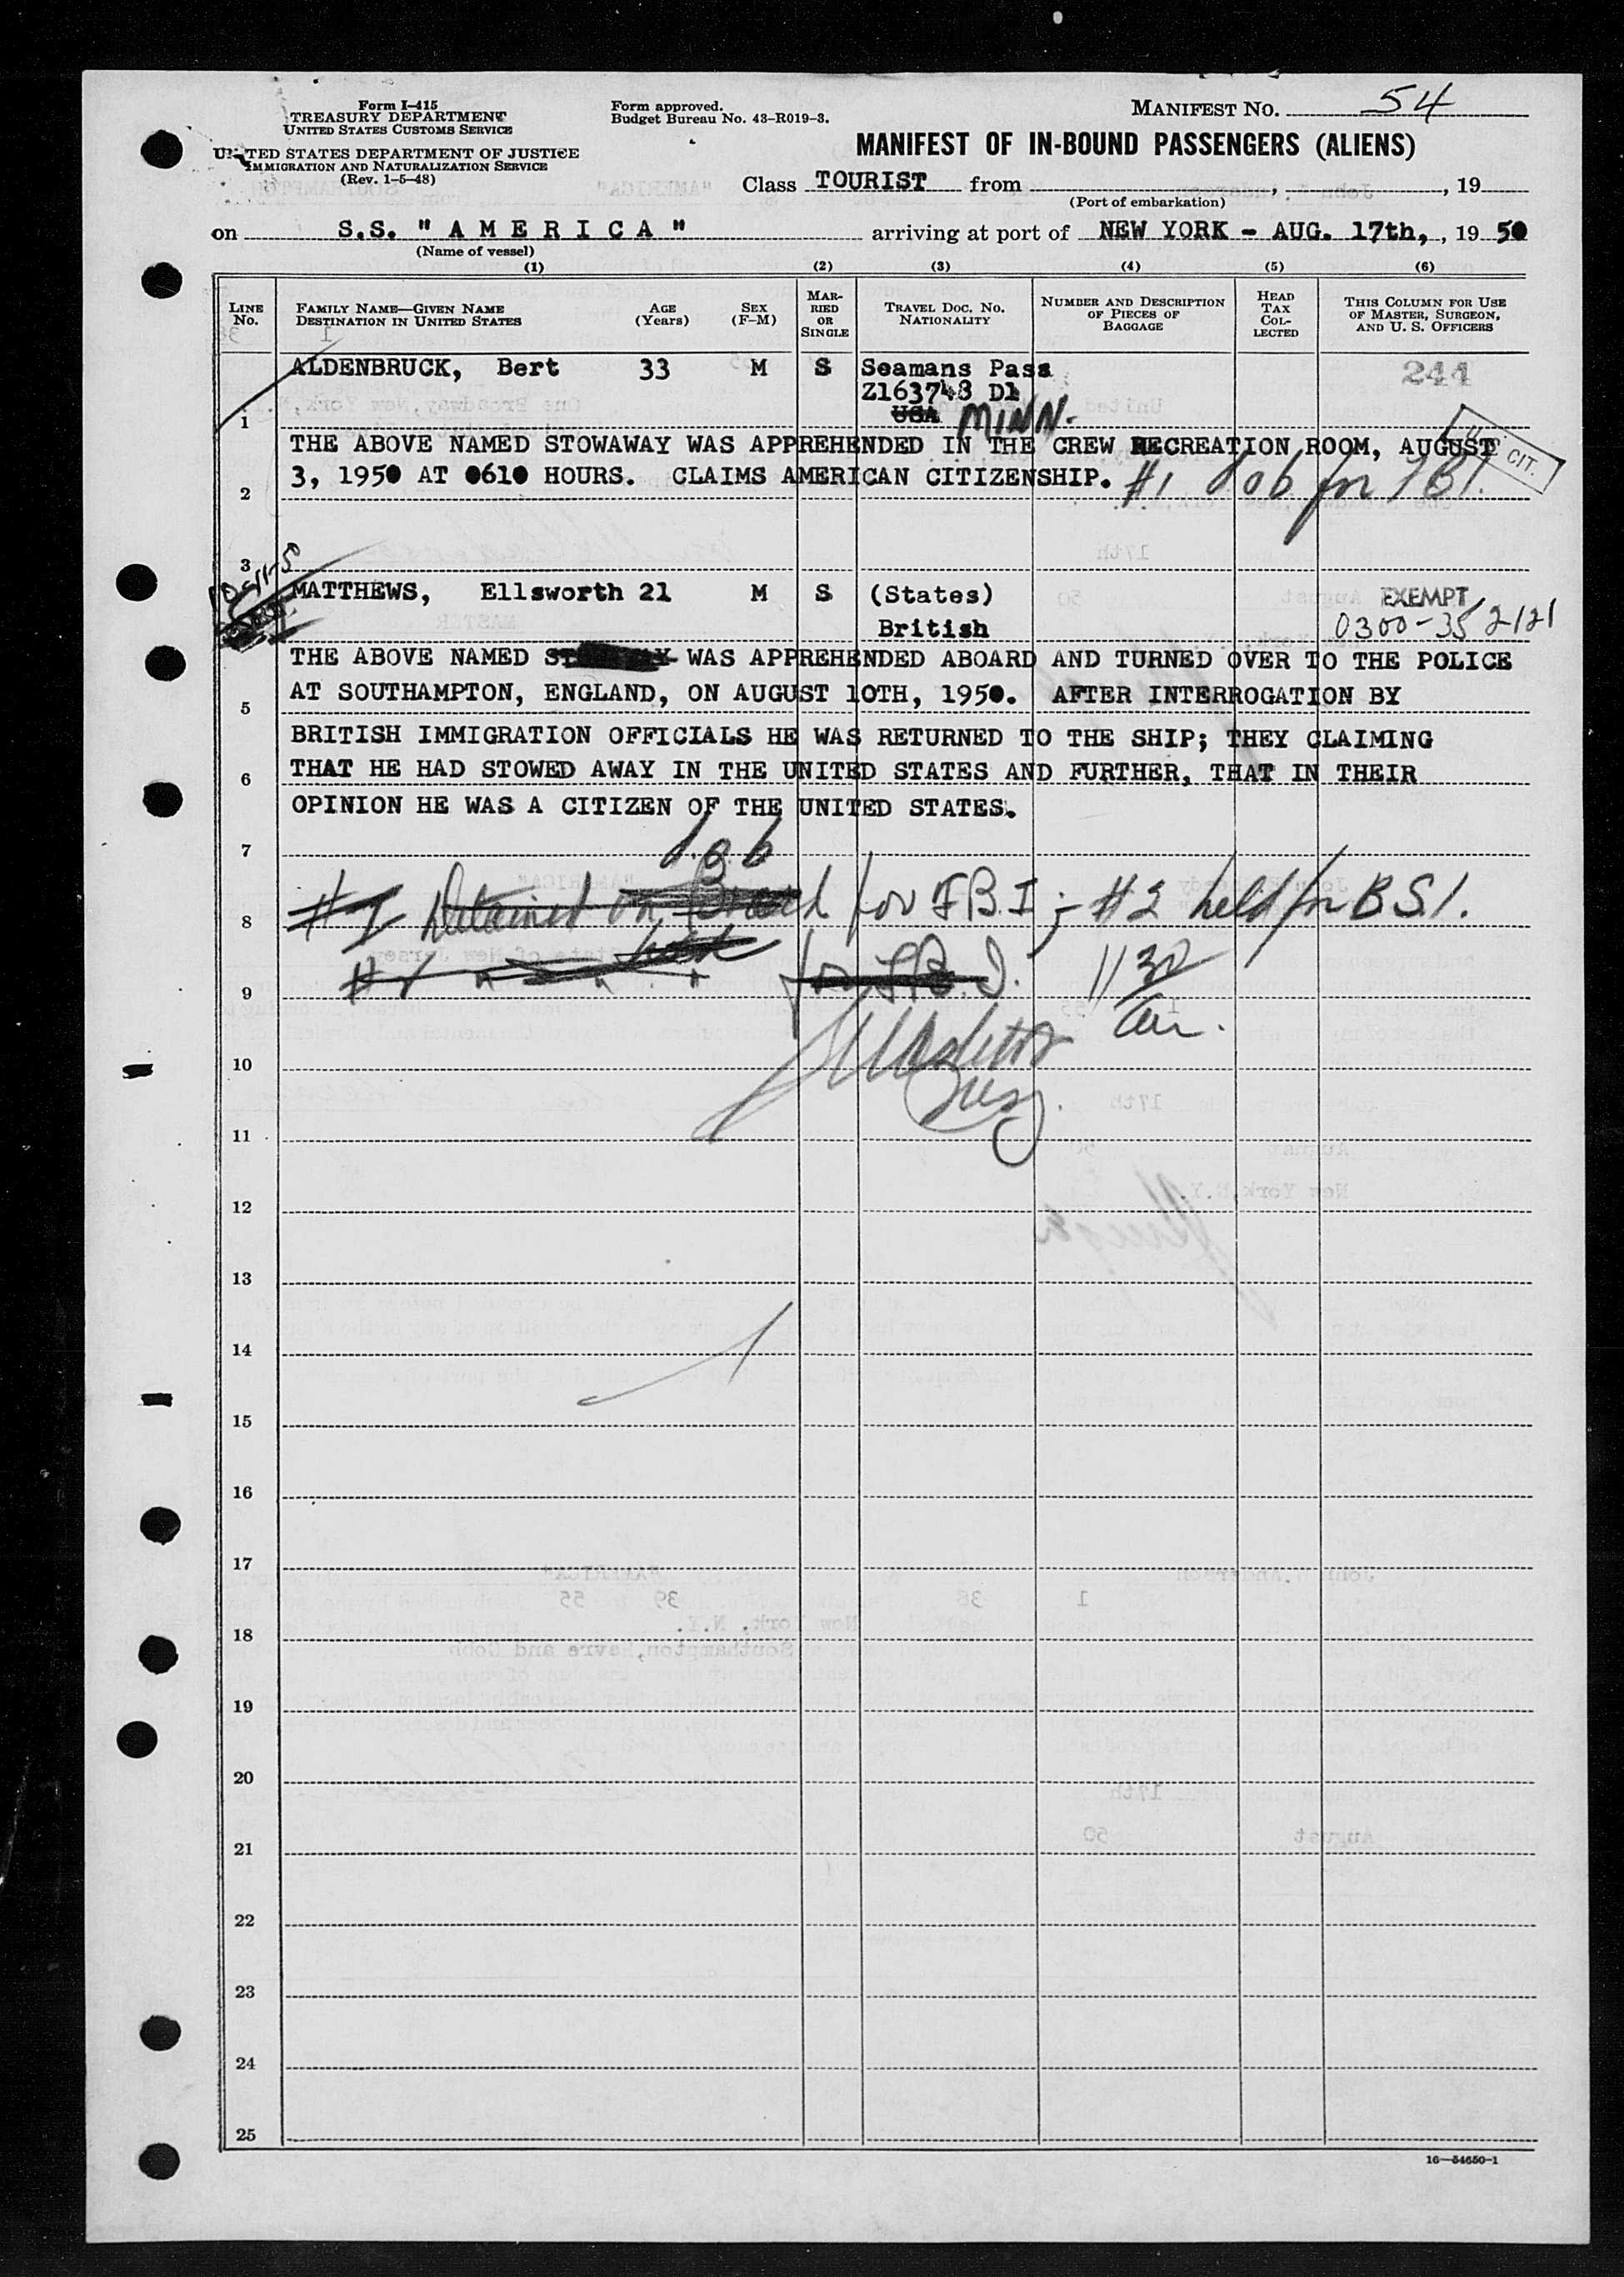 Form I-415
TREASURY DEPARTMENT
UNITED STATES CUSTOMS SERVICE
UNITED STATES DEPARTMENT OF JUSTICE
IMMIGRATION AND NATURALIZATION SERVICE
(Rev. 1-5-48)
Form approved.
Budget Bureau No. 43-R019-3.
MANIFEST NO. 54
MANIFEST OF IN-BOUND PASSENGERS (ALIENS)
Class TOURIST from , , 19
(Port of embarkation)
on S.S. "A M E R I C A" arriving at port of NEW YORK - AUG. 17th, , 19 50
(Name of vessel)
(1) (2) (3) (4) (5) (6)
LINE No.
FAMILY NAME—GIVEN NAME
DESTINATION IN UNITED STATES
AGE (Years)
SEX (F-M)
MAR-RIED OR SINGLE
TRAVEL DOC. NO.
NATIONALITY
NUMBER AND DESCRIPTION OF PIECES OF BAGGAGE
HEAD TAX COL-LECTED
THIS COLUMN FOR USE OF MASTER, SURGEON, AND U. S. OFFICERS
ALDENBRUCK, Bert 33 M S Seamans Pass 244
Z163748 D1
1 USA MINN.
THE ABOVE NAMED STOWAWAY WAS APPREHENDED IN THE CREW RECREATION ROOM, AUGUST
U.S. CIT.
2 3, 1950 AT 0610 HOURS. CLAIMS AMERICAN CITIZENSHIP. #1 dob for FBI.
3
MATTHEWS, Ellsworth 21 M S (States) EXEMPT
British 0300-35 2121
THE ABOVE NAMED WAS APPREHENDED ABOARD AND TURNED OVER TO THE POLICE
5 AT SOUTHAMPTON, ENGLAND, ON AUGUST 10TH, 1950. AFTER INTERROGATION BY
BRITISH IMMIGRATION OFFICIALS HE WAS RETURNED TO THE SHIP; THEY CLAIMING
6 THAT HE HAD STOWED AWAY IN THE UNITED STATES AND FURTHER, THAT IN THEIR
OPINION HE WAS A CITIZEN OF THE UNITED STATES.
7 d.o.b
8 #1 Detained on Board for F.B.I; #2 held for B.S.I.
9 for F.B.I. 11 30
am.
10
11
12
13
14
15
16
17
18
19
20
21
22
23
24
25
16—54650-1